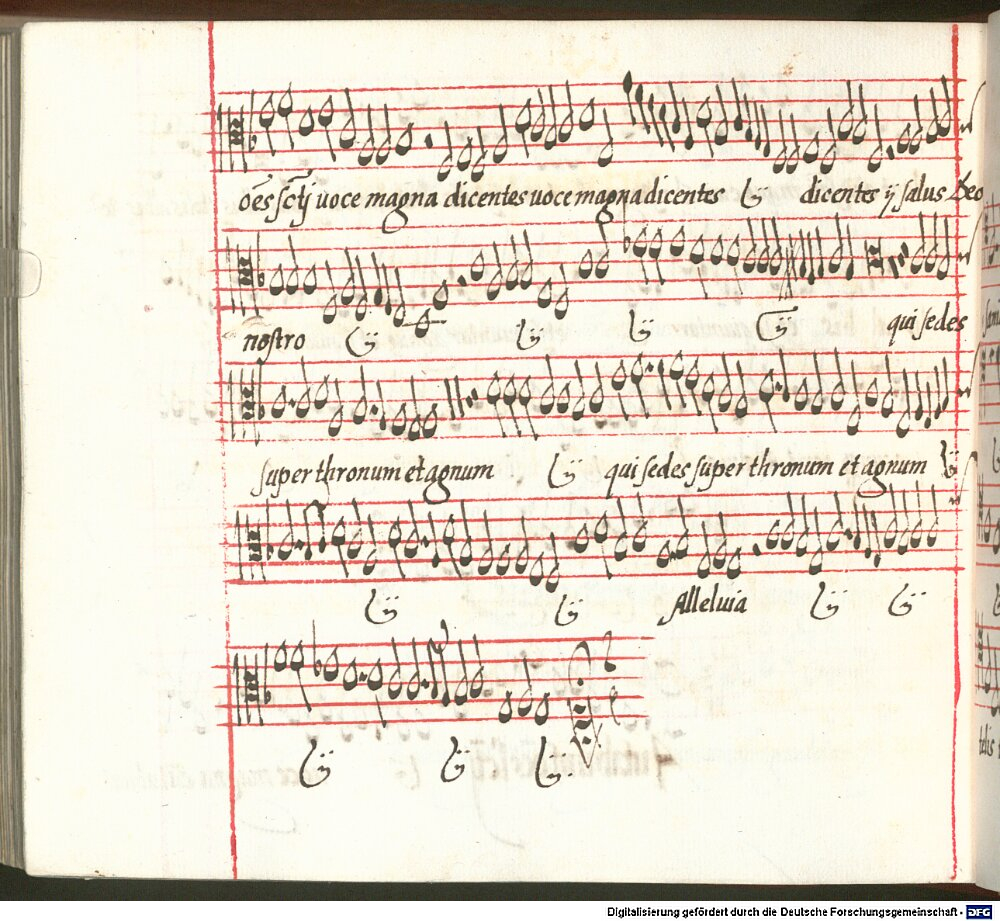 oēs sctj uoce magna dicentes uoce magna dicentes ij dicentes ij salus Deo
nostro ij ij ij ij qui sedes
super thronum et agnum ij qui sedes super thronum et agnum ij
ij ij Alleluia ij ij
ij ij ij.
Digitalisierung gefördert durch die Deutsche Forschungsgemeinschaft - DFG